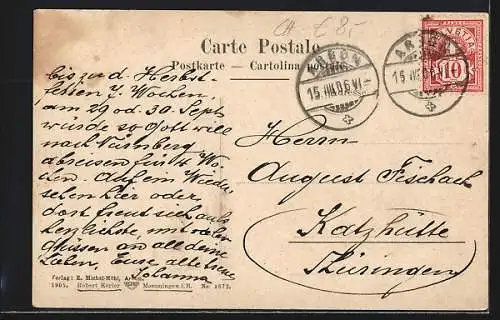 CH € 8.-
Carte Postale
Postkarte - Cartolina postale
HELVETIA
10
ARBON
15 VIII.06.VI
ARBON
15
bis zu d. Herbst-
7 Wochen
am 29 od. 30. Sept
würde so Gott will
nach Nürnberg
abreisen für 14 Wo-
chen. Auf ein Wieder
sehen hier oder
dort freut sich aufs
herzlichste, mit
Grüssen an all deine
Lieben, Eure alte treue
Johanna
Herrn
August Fischach
Katzhütte
Thüringen
Verlag: E. Michel-Mühl, Arbon
1905. Robert Kerler Memmingen i. B. No 1673.